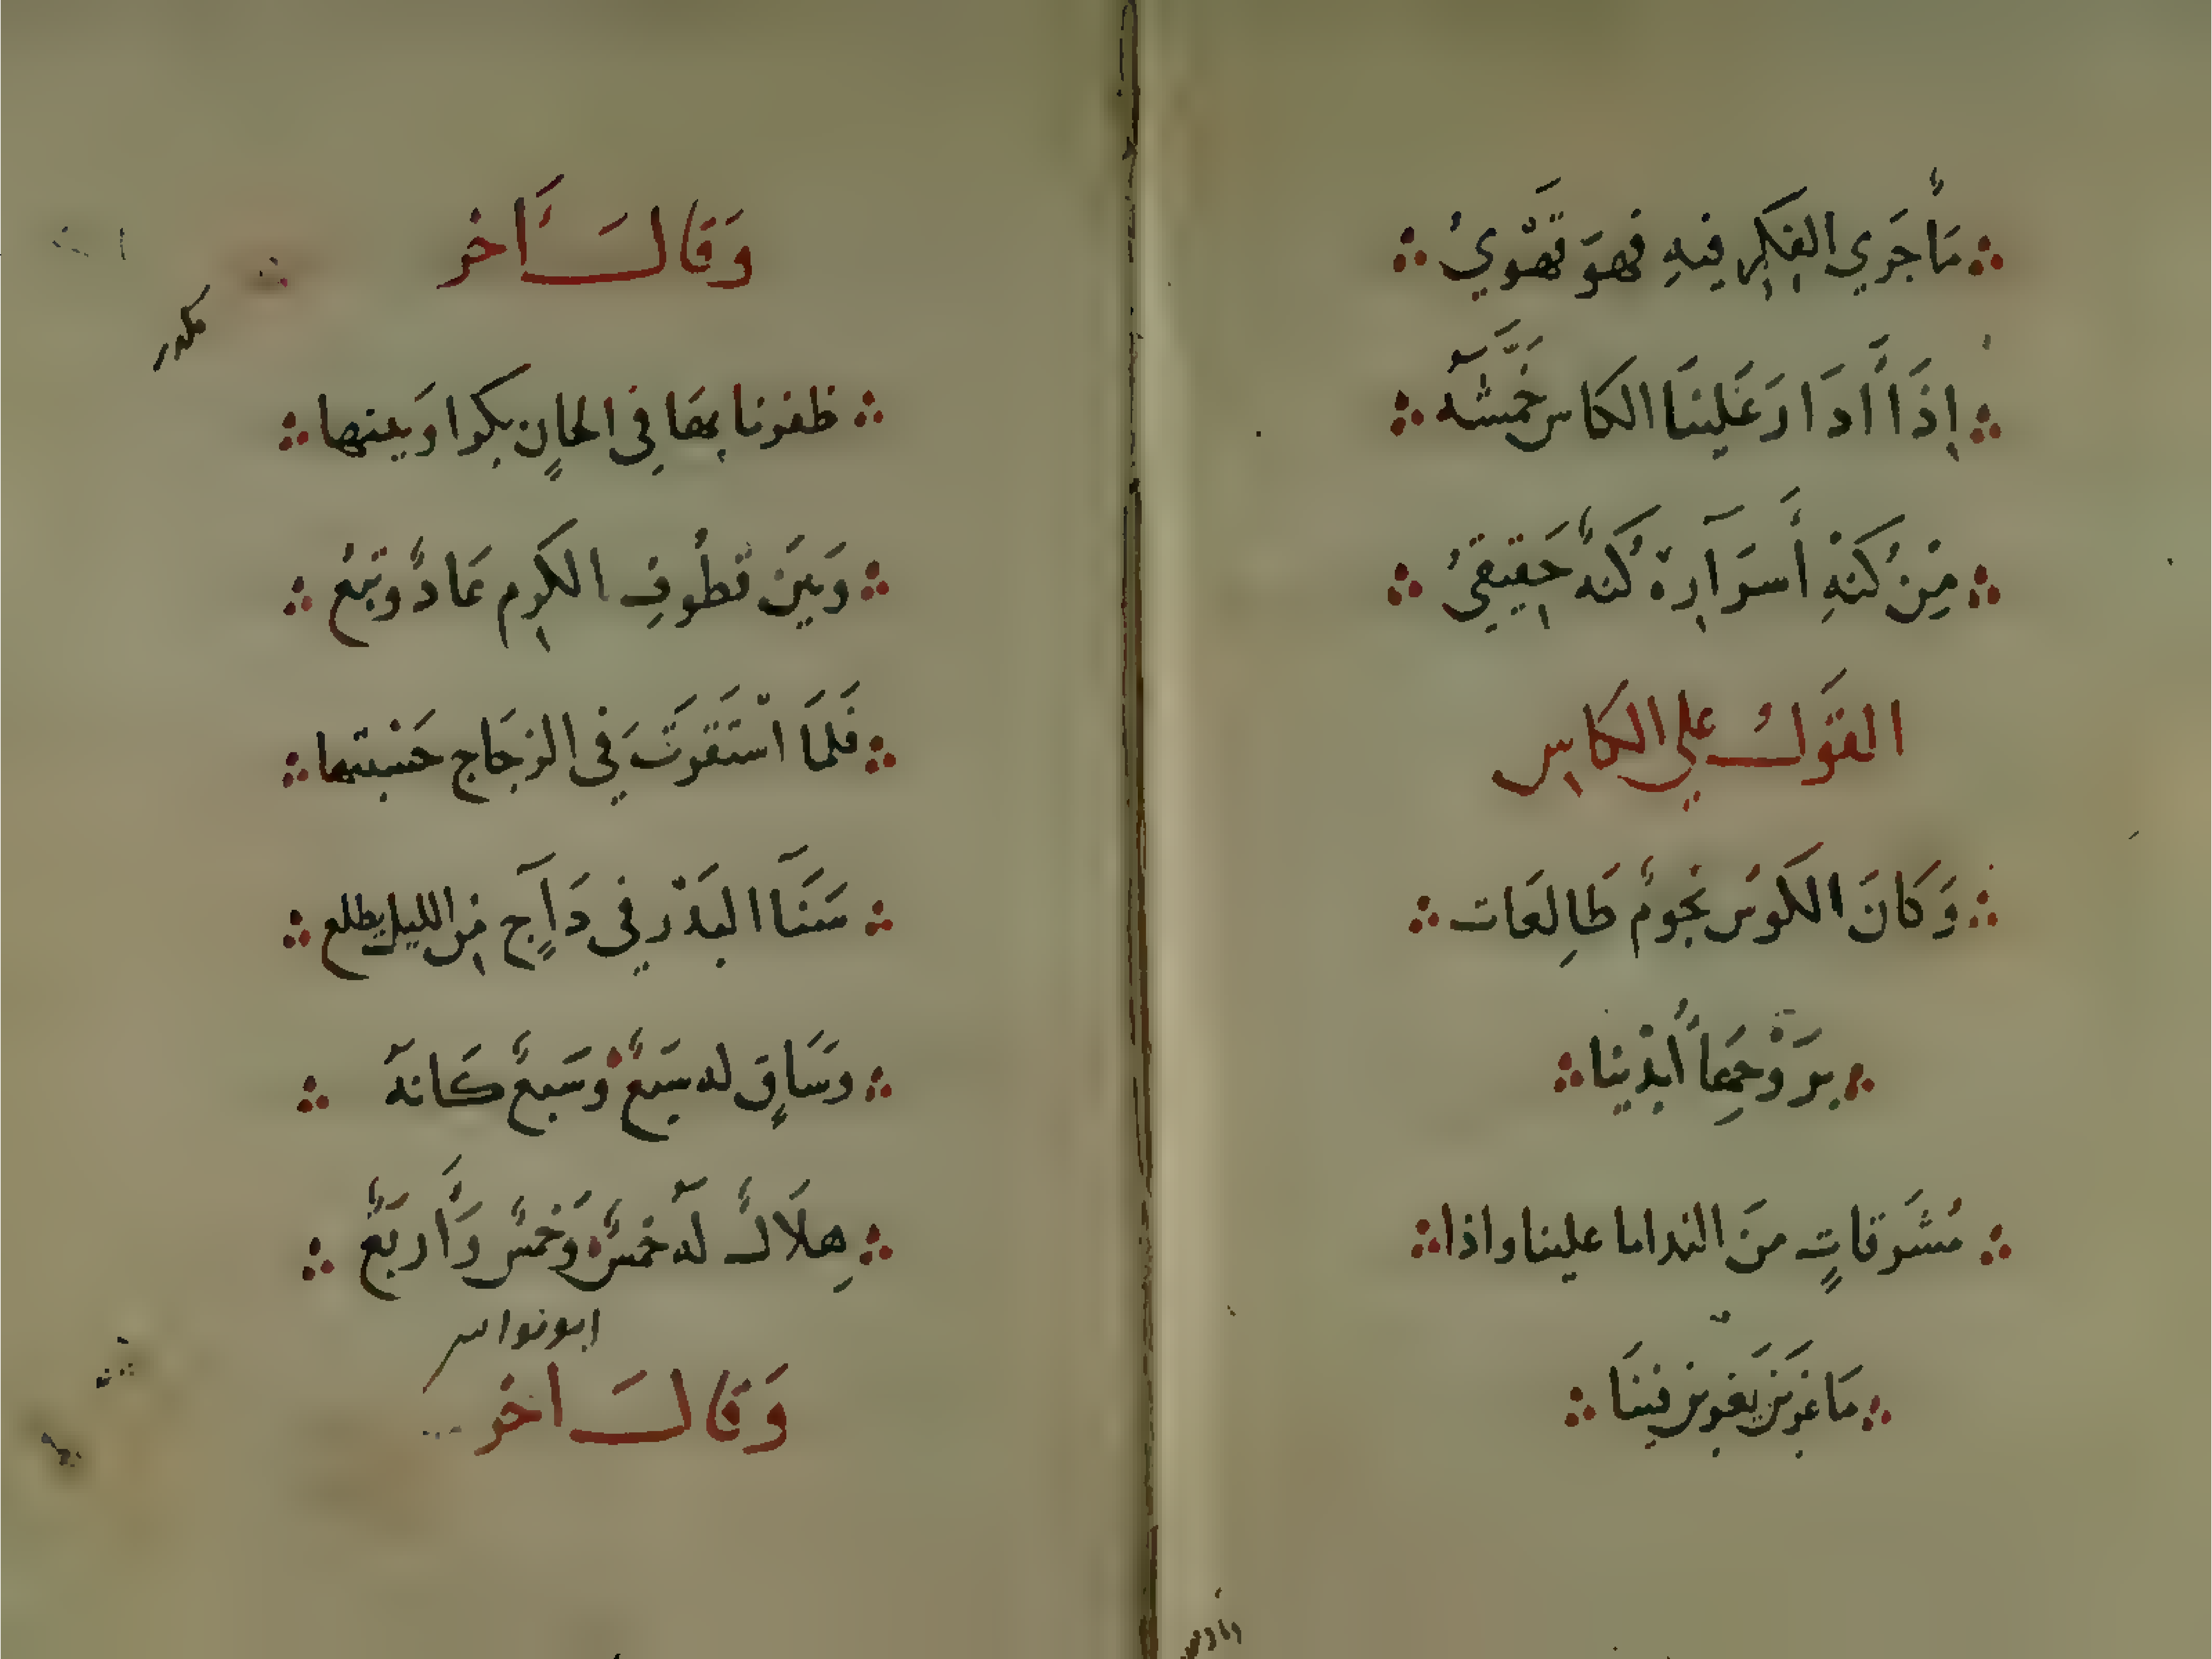 مَا جَرَي الفِكِر فيهِ فهوَ تَهَوّيُ
إِذَا أَدَارَ عَلينَا الكاس خَمّشَه
مِن كُنهِ أَسرَارِهٌ كُنهُ حَقِيقيُ
القَولُ علي الكاسِ
وَكانَ الكوسَ نجومٌ طَالِعَات
بروُجِهَا أَيْدِينا
مُشَرقاتٍ منَ الندامَا علينا واذا
مَا غربنَ يَغربنَ فينَا
وَقَالَ آخر
ظفرنا بهَا فِي الحانِ بكرا وَبينها
وَبينَ قطُوفِ الكرم عَادٌ وتبعُ
فَلمَّا اسْتَقرتَ في الزجَاج حَسبتها
سَنَا البَدْر في دَاجٍ مِن الليل يطلع
وسَاقٍ له سَبعٌ وسَبعٌ كَانهُ
هِلَالٌ لهُ خمسٌ وَخمسٌ وَأربَعُ
ابونواس
وَقَالَ اخر
مكرر